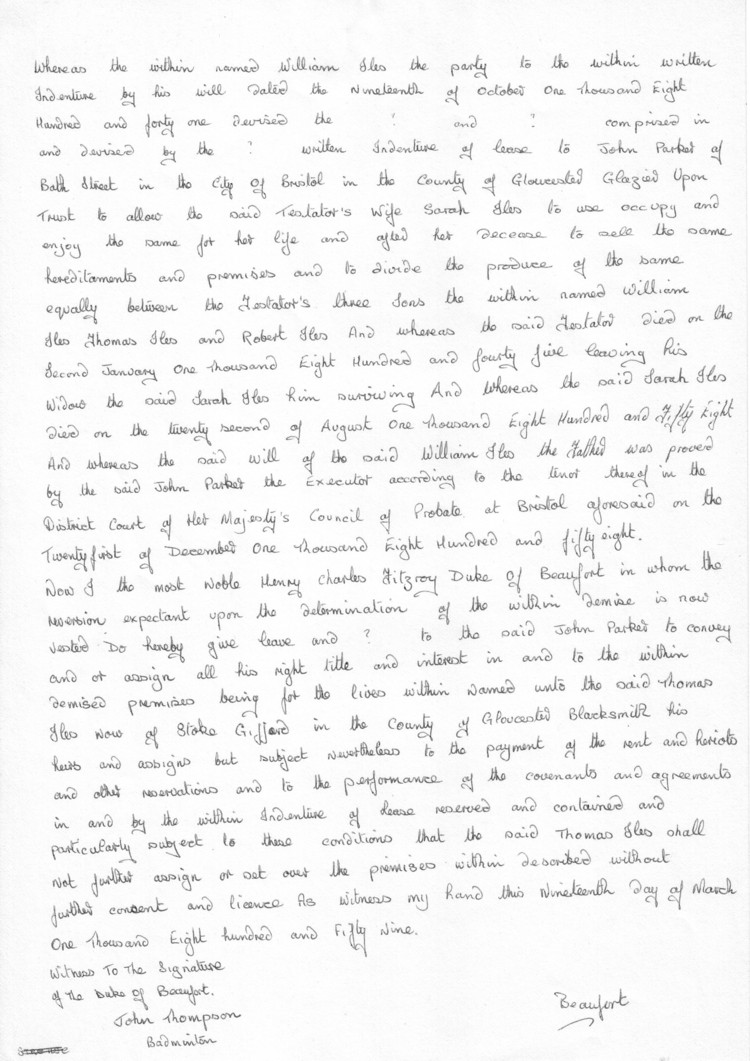 Whereas the within named William Iles the party to the within written
Indenture by his will dated the Nineteenth of October One Thousand Eight
Hundred and forty one devised the ? and ? comprised in
and devised by the ? written Indenture of lease to John Parker of
Bath Street in the City Of Bristol in the County of Gloucester Glazier Upon
Trust to allow the said Testator's Wife Sarah Iles to use occupy and
enjoy the same for her life and after her decease to sell the same
hereditaments and premises and to divide the produce of the same
equally between the Testator's three Sons the within named William
Iles Thomas Iles and Robert Iles And whereas the said Testator died on the
Second January One Thousand Eight Hundred and fourty five leaving his
Widow the said Sarah Iles him surviving And Whereas the said Sarah Iles
died on the twenty second of August One Thousand Eight Hundred and Fifty Eight
And whereas the said will of the said William Iles the Father was proved
by the said John Parker the Executor according to the tenor thereof in the
District Court of Her Majesty's Council of Probate at Bristol aforesaid on the
Twenty first of December One Thousand Eight Hundred and fifty eight.
Now I the most Noble Henry Charles Fitzroy Duke of Beaufort in whom the
reversion expectant upon the determination of the within demise is now
vested Do hereby give leave and ? to the said John Parker to convey
and or assign all his right title and interest in and to the within
demised premises being for the lives within Named unto the said Thomas
Iles Now of Stoke Gifford in the County of Gloucester Blacksmith his
heirs and assigns but subject Nevertheless to the payment of the rent and heriots
and other reservations and to the performance of the covenants and agreements
in and by the within Indenture of Lease reserved and contained and
particularly subject to these conditions that the said Thomas Iles shall
Not further assign or set over the premises within described without
further consent and licence As witness my hand this Nineteenth day of March
One Thousand Eight hundred and Fifty Nine.
Witness To The Signature
of The Duke of Beaufort.
John Thompson
Badminton
Beaufort